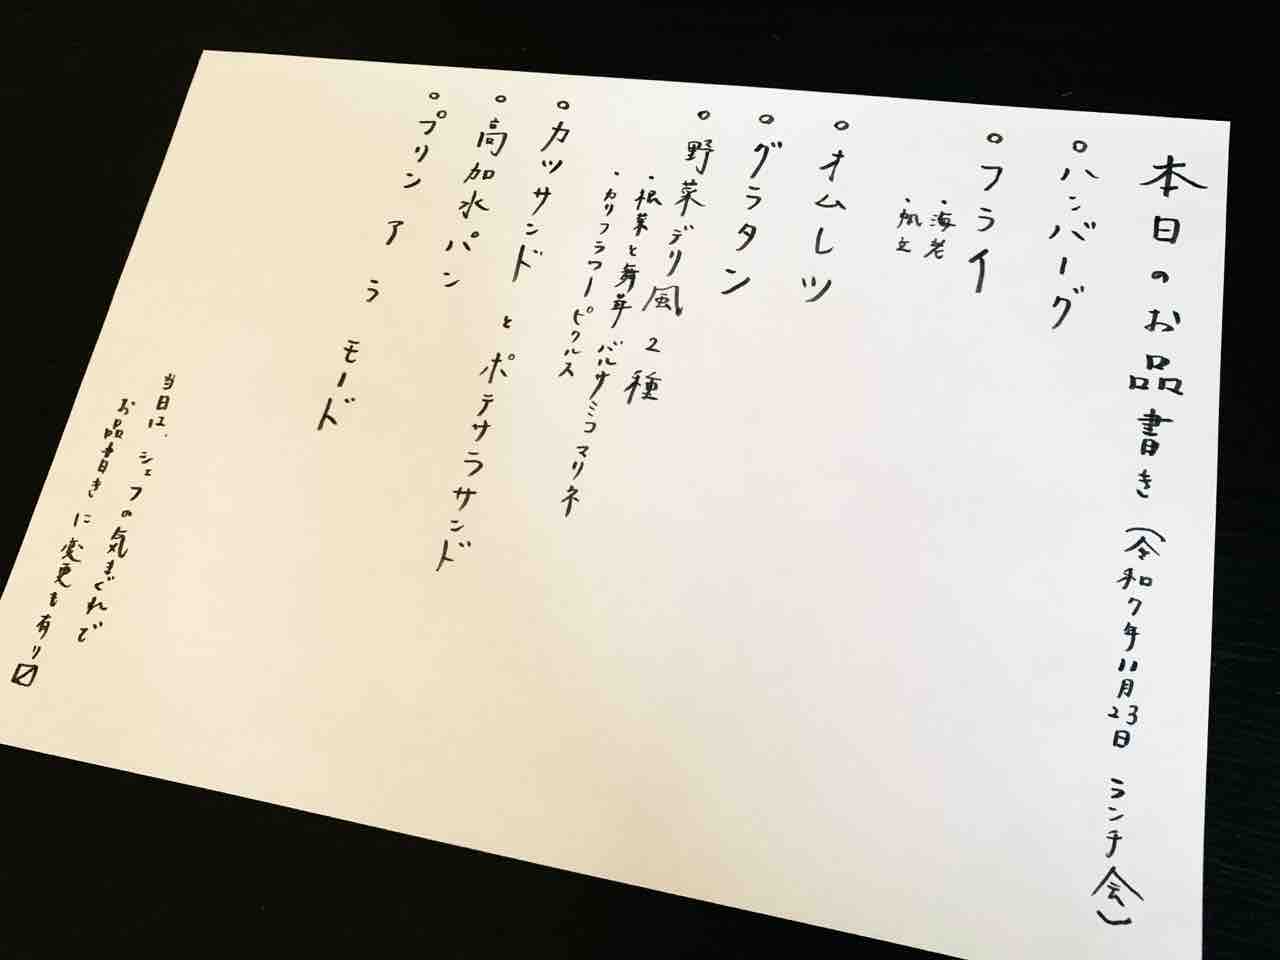 本日のお品書き(令和7年11月23日 ランチ会)
○ハンバーグ
○フライ
・海老
・帆立
○オムレツ
○グラタン
○野菜デリ風2種
・根菜と舞茸バルサミコマリネ
・カリフラワーピクルス
○カツサンドとポテサラサンド
○高加水パン
○プリン ア ラ モード
当日は、シェフの気まぐれで
お品書きに変更も有り〼